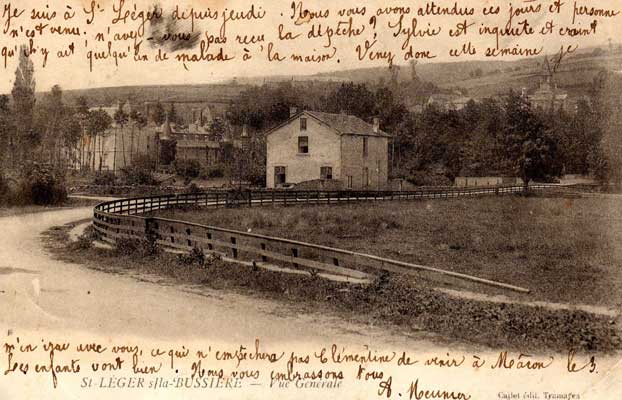 Je suis à St Léger depuis jeudi. Nous vous avons attendus ces jours et personne
n'est venu, n'avez-vous pas reçu la dépêche? Sylvie est inquiète et craint
qu'il n'y ait quelqu'un de malade à la maison. Venez donc cette semaine je
m'en irai avec vous, ce qui n'empêchera pas Clémentine de venir à Mâcon le 3.
Les enfants vont bien. Nous vous embrassons tous
A. Meunier
St-LÉGER s/la-BUSSIÈRE - Vue Générale
Callet édit. Tramayes